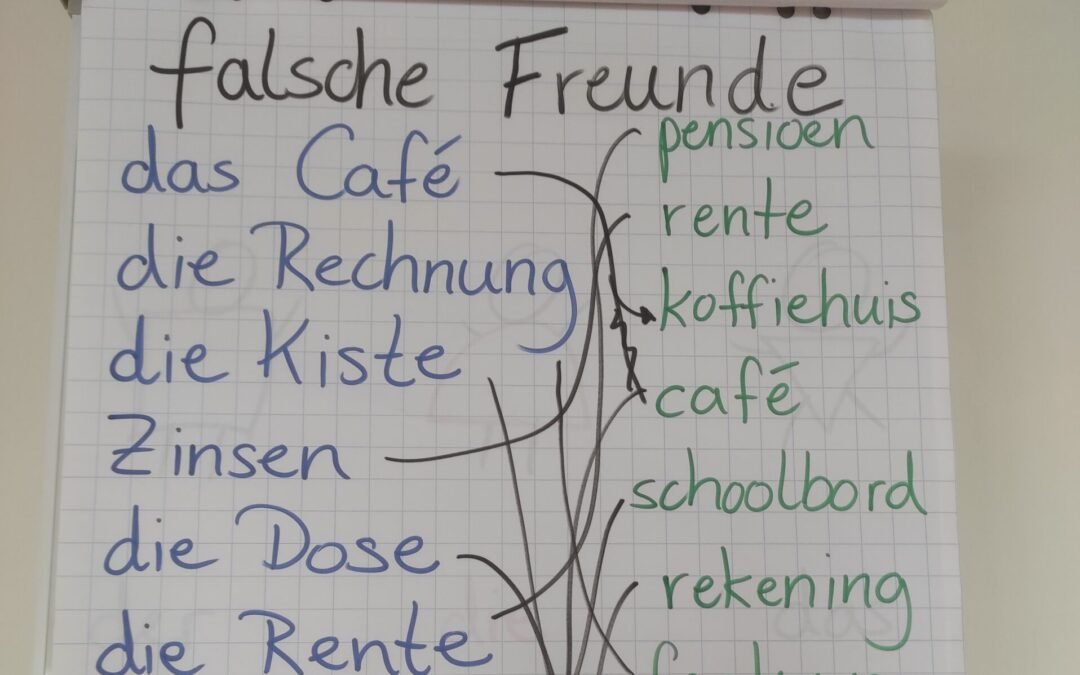 falsche Freunde
das Café
die Rechnung
die Kiste
Zinsen
die Dose
die Rente
pensioen
rente
koffiehuis
café
schoolbord
rekening